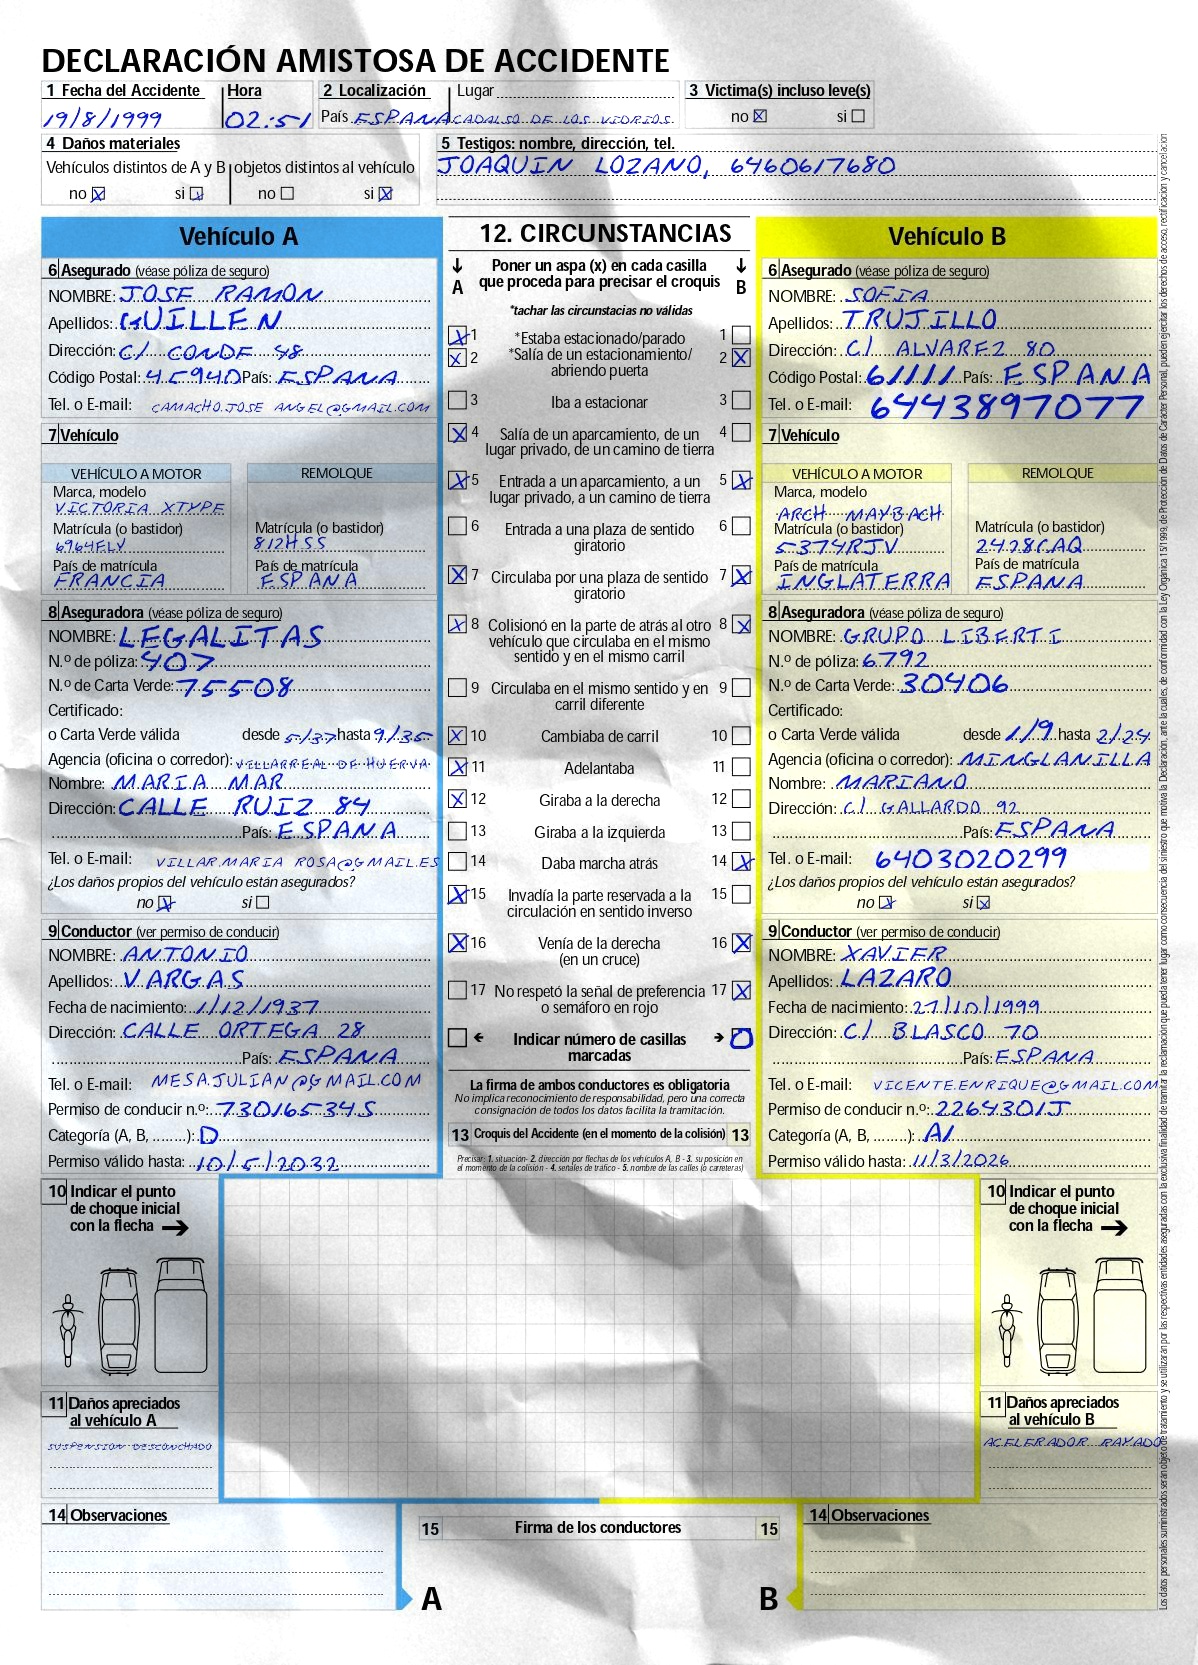 DECLARACIÓN AMISTOSA DE ACCIDENTE
1 Fecha del Accidente Hora 2 Localización Lugar 3 Victima(s) incluso leve(s)
19/8/1999 02:51 País ESPAÑA CADALSO DE LOS VIDRIOS no si
4 Daños materiales
Vehículos distintos de A y B objetos distintos al vehículo
no si no si
5 Testigos: nombre, dirección, tel.
JOAQUIN LOZANO, 6460617680
Vehículo A
6 Asegurado (véase póliza de seguro)
NOMBRE: JOSE RAMON
Apellidos: GUILLEN
Dirección: C/ CONDE 48
Código Postal: 45940 País: ESPANA
Tel. o E-mail: CAMACHO.JOSE ANGEL@GMAIL.COM
7 Vehículo
VEHÍCULO A MOTOR REMOLQUE
Marca, modelo
VICTORIA XTYPE
Matrícula (o bastidor) Matrícula (o bastidor)
6964FLV 812HSS
País de matrícula País de matrícula
FRANCIA ESPANA
8 Aseguradora (véase póliza de seguro)
NOMBRE: LEGALITAS
N.º de póliza: 407
N.º de Carta Verde: 75508
Certificado:
o Carta Verde válida desde 5/37 hasta 9/35
Agencia (oficina o corredor): VILLARREAL DE HUERVA
Nombre: MARIA MAR
Dirección: CALLE RUIZ 84
País: ESPANA
Tel. o E-mail: VILLAR.MARIA ROSA@GMAIL.ES
¿Los daños propios del vehículo están asegurados?
no si
9 Conductor (ver permiso de conducir)
NOMBRE: ANTONIO
Apellidos: VARGAS
Fecha de nacimiento: 1/12/1937
Dirección: CALLE ORTEGA 28
País: ESPANA
Tel. o E-mail: MESA.JULIAN@GMAIL.COM
Permiso de conducir n.º: 73016534S
Categoría (A, B, ........): D
Permiso válido hasta: 10/5/2032
12. CIRCUNSTANCIAS
A Poner un aspa (x) en cada casilla que proceda para precisar el croquis B
*tachar las circunstacias no válidas
1 *Estaba estacionado/parado 1
2 *Salía de un estacionamiento/ 2
abriendo puerta
3 Iba a estacionar 3
4 Salía de un aparcamiento, de un 4
lugar privado, de un camino de tierra
5 Entrada a un aparcamiento, a un 5
lugar privado, a un camino de tierra
6 Entrada a una plaza de sentido 6
giratorio
7 Circulaba por una plaza de sentido 7
giratorio
8 Colisionó en la parte de atrás al otro 8
vehículo que circulaba en el mismo
sentido y en el mismo carril
9 Circulaba en el mismo sentido y en 9
carril diferente
10 Cambiaba de carril 10
11 Adelantaba 11
12 Giraba a la derecha 12
13 Giraba a la izquierda 13
14 Daba marcha atrás 14
15 Invadía la parte reservada a la 15
circulación en sentido inverso
16 Venía de la derecha 16
(en un cruce)
17 No respetó la señal de preferencia 17
o semáforo en rojo
Indicar número de casillas
marcadas
La firma de ambos conductores es obligatoria
No implica reconocimiento de responsabilidad, pero una correcta
consignación de todos los datos facilita la tramitación.
13 Croquis del Accidente (en el momento de la colisión) 13
Precisar: 1. situación- 2. dirección por flechas de los vehículos A, B - 3. su posición en
el momento de la colisión - 4. señales de tráfico - 5. nombre de las calles (o carreteras)
Vehículo B
6 Asegurado (véase póliza de seguro)
NOMBRE: SOFIA
Apellidos: TRUJILLO
Dirección: C/ ALVAREZ 80
Código Postal: 61111 País: ESPANA
Tel. o E-mail: 6443897077
7 Vehículo
VEHÍCULO A MOTOR REMOLQUE
Marca, modelo
ARCH MAYBACH
Matrícula (o bastidor) Matrícula (o bastidor)
5374RJV 2428CAQ
País de matrícula País de matrícula
INGLATERRA ESPANA
8 Aseguradora (véase póliza de seguro)
NOMBRE: GRUPO LIBERTI
N.º de póliza: 6792
N.º de Carta Verde: 30406
Certificado:
o Carta Verde válida desde 1/9 hasta 2/24
Agencia (oficina o corredor): MINGLANILLA
Nombre: MARIANO
Dirección: C/ GALLARDO 92
País: ESPANA
Tel. o E-mail: 6403020299
¿Los daños propios del vehículo están asegurados?
no si
9 Conductor (ver permiso de conducir)
NOMBRE: XAVIER
Apellidos: LAZARO
Fecha de nacimiento: 27/10/1999
Dirección: C/ BLASCO 70
País: ESPANA
Tel. o E-mail: VICENTE.ENRIQUE@GMAIL.COM
Permiso de conducir n.º: 2264301J
Categoría (A, B, ........): A1
Permiso válido hasta: 11/3/2026
10 Indicar el punto
de choque inicial
con la flecha
11 Daños apreciados
al vehículo A
SUSPENSION DESCONCHADO
10 Indicar el punto
de choque inicial
con la flecha
11 Daños apreciados
al vehículo B
ACELERADOR RAYADO
14 Observaciones
15 Firma de los conductores 15
14 Observaciones
A B